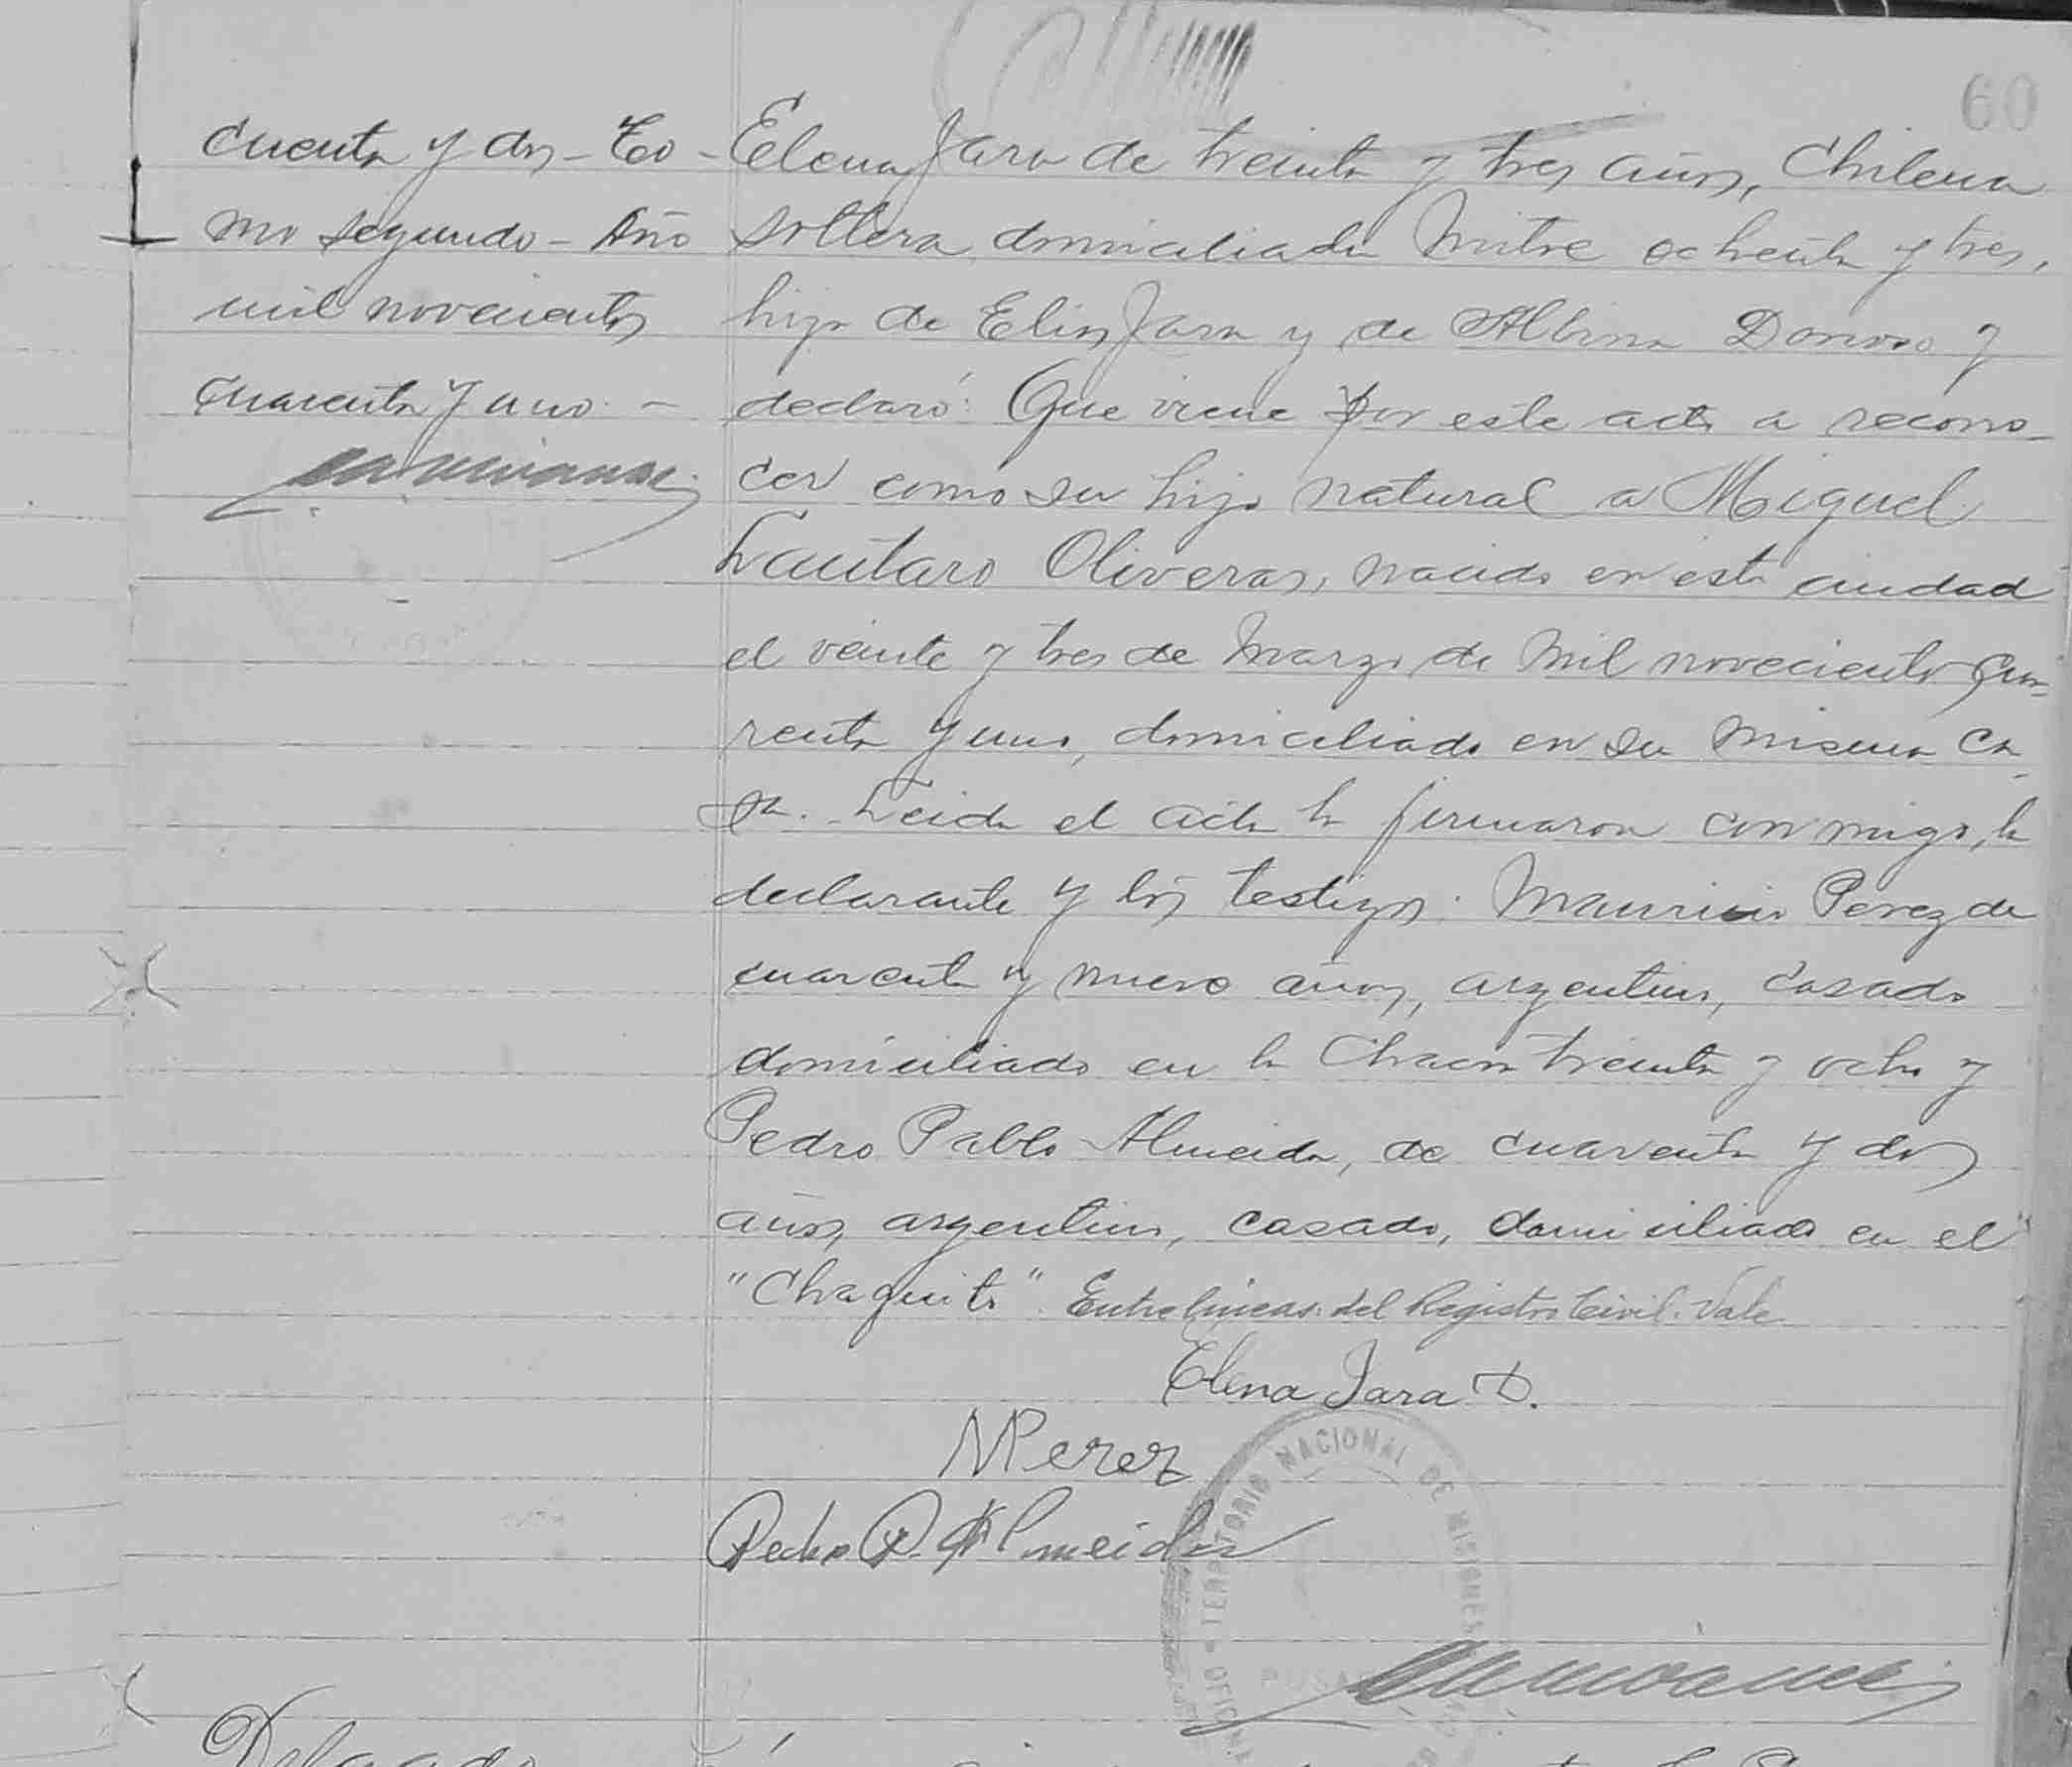 60
cuenta y dos - To-
mo segundo - Año
mil novecientos
cuarenta y uno. -
Elena Jara de treinta y tres años, Chilena
soltera, domiciliada Mitre ochenta y tres,
hija de Elias Jara y de Albina Donoso y
declaró: Que viene por este acto a recono-
cer como su hijo natural a Miguel
Lautaro Oliveras, nacido en esta ciudad
el veinte y tres de Marzo de mil novecientos cua-
renta y uno, domiciliado en su misma ca-
sa. Leida el acta la firmaron conmigo, la
declarante y los testigos: Mauricio Perez de
cuarenta y nueve años, argentino, casado
domiciliado en la Chacra treinta y ocho y
Pedro Pablo Almeida, de cuarenta y dos
años, argentino, casado, domiciliado en el
"Chaquito". Entre lineas: del Registro Civil. Vale.
Elena Jara D.
MPerez
Pedro P. Almeida
OFICINA TERRITORIO NACIONAL DE MISIONES
Delgado